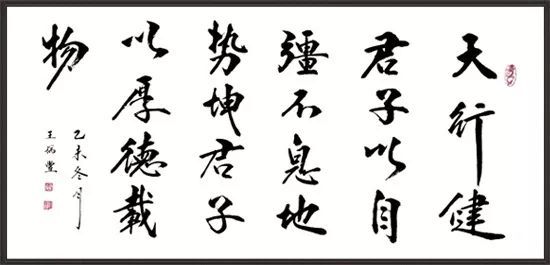 天行健
君子以自
彊不息地
势坤君子
以厚德載
物
乙未冬月
王炳豐